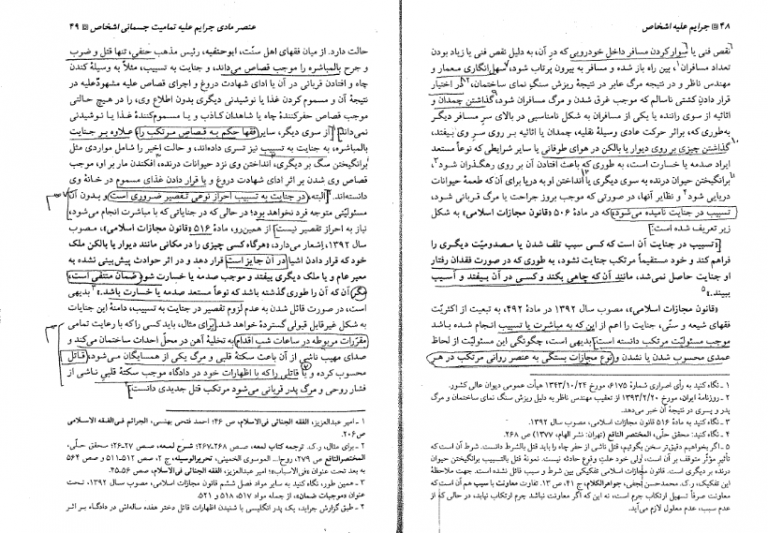 ۴۸ جرایم علیه اشخاص
نقص فنی یا سوار کردن مسافر داخل خودرویی که در آن، به دلیل نقص فنی یا زیاد بودن
تعداد مسافران۱، بین راه باز شده و مسافر به بیرون پرتاب شود، سهل‌انگاری معمار و
مهندس ناظر و در نتیجه مرگ عابر در نتیجهٔ ریزش سنگ نمای ساختمان،۲ در اختیار
قرار دادن کشتی ناسالم که موجب غرق شدن و مرگ مسافران شود، گذاشتن چمدان و
اثاثیه از سوی راننده یا یکی از مسافران به شکل نامناسبی در بالای سر مسافر دیگر
به‌طوری که، براثر حرکت عادی وسیلهٔ نقلیه، چمدان یا اثاثیه بر روی سر وی بیفتد،
گذاشتن چیزی بر روی دیوار یا بالکن در هوای طوفانی یا سایر شرایطی که نوعاً مستعد
ایراد صدمه یا خسارت است، به طوری که باعث افتادن آن بر روی رهگذران شود۳،
برانگیختن حیوان درنده به سوی دیگری یا انداختن او به دریا برای آن‌که طعمهٔ حیوانات
دریایی شود۴ و نظایر آنها، در صورتی که موجب بروز جراحت یا مرگ قربانی شود،
تسبیب در جنایت نامیده می‌شود که در مادهٔ ۵۰۶ «قانون مجازات اسلامی» به شکل
زیر تعریف شده است:
«تسبیب در جنایت آن است که کسی سبب تلف شدن یا مصدومیت دیگری را
فراهم کند و خود مستقیماً مرتکب جنایت نشود، به طوری که در صورت فقدان رفتار
او جنایت حاصل نمی‌شد، مانند آن که چاهی بکند و کسی در آن بیفتد و آسیب
ببیند.»۵
«قانون مجازات اسلامی»، مصوب سال ۱۳۹۲ در مادهٔ ۴۹۲، به تبعیت از اکثریت
فقهای شیعه و سنی، جنایت را اعم از این که به مباشرت یا تسبیب انجام شده باشد
موجب مسئولیت مرتکب دانسته است. بدیهی است، چگونگی این مسئولیت از لحاظ
عمدی محسوب شدن یا نشدن و نوع مجازات بستگی به عنصر روانی مرتکب در هر
۱ - نگاه کنید به رأی اصراری شمارهٔ ۶۱۷۵، مورخ ۱۳۴۳/۱۰/۲۴ هیأت عمومی دیوان عالی کشور.
۲ - روزنامه ایران، مورخ ۱۳۹۳/۲/۲۰ از تعقیب مهندس ناظر به دلیل ریزش سنگ نمای ساختمان و مرگ
پدر و پسری در نتیجهٔ آن خبر می‌دهد.
۳ - نگاه کنید به مادهٔ ۵۱۶ قانون مجازات اسلامی، مصوب سال ۱۳۹۲.
۴ - نگاه کنید: محقق حلّی، المختصر النافع (تهران: نشر الهام، ۱۳۷۷) ص ۲۶۸.
۵ - اگر بخواهیم دقیق‌تر سخن بگوییم، قتل ناشی از حفر چاه را باید قتل بالشرط دانست. شرط آن است که
تأثیر مؤثر متوقف بر آن است، ولی خود علت وقوع حادثه نیست. نمونهٔ قتل بالتسبیب برانگیختن حیوان
درنده بر دیگری است. قانون مجازات اسلامی تفکیکی بین شرط و سبب قائل نشده است. جهت ملاحظهٔ
این تفکیک، ر.ک. محمدحسن نجفی، جواهرالکلام، ج ۴۱، ص ۱۳. تفاوت معاونت با سبب هم آن است که
معاونت صرفاً تسهیل ارتکاب جرم است، نه این که اگر معاونت نباشد جرم ارتکاب نیابد، در حالی که از
عدم سبب، عدم معلول لازم می‌آید.
عنصر مادی جرایم علیه تمامیت جسمانی اشخاص ۴۹
حالت دارد. از میان فقهای اهل سنّت، ابوحنیفه، رئیس مذهب حنفی، تنها قتل و ضرب
و جرح بالمباشره را موجب قصاص می‌داند، و جنایت به تسبیب، مثلاً به وسیلهٔ کندن
چاه و افتادن قربانی در آن یا ادای شهادت دروغ و اجرای قصاص علیه مشهودٌعلیه در
نتیجهٔ آن و مسموم کردن غذا یا نوشیدنی دیگری بدون اطلاع وی، را در هیچ حالتی
موجب قصاص حفرکنندهٔ چاه یا شاهدان کاذب و یا مسموم‌کنندهٔ غذا یا نوشیدنی
نمی‌داند.۱ از سوی دیگر، سایر فقها حکم به قصاص مرتکب را، علاوه بر جنایت
بالمباشره، به جنایت به تسبیب نیز تسری داده‌اند، و حالت اخیر را شامل مواردی مثل
برانگیختن سگ بر دیگری، انداختن وی نزد حیوانات درنده، افکندن مار بر او، موجب
قصاص وی شدن بر اثر ادای شهادت دروغ و یا قرار دادن غذای مسموم در خانهٔ وی
دانسته‌اند.۲ البته، در جنایت به تسبیب احراز نوعی تقصیر ضروری است و بدون آن
مسئولیتی متوجه فرد نخواهد بود؛ در حالی که در جنایاتی که با مباشرت انجام می‌شود،
نیاز به احراز تقصیر نیست. از همین‌رو، مادهٔ ۵۱۶ «قانون مجازات اسلامی»، مصوب
سال ۱۳۹۲، إشعار می‌دارد، «هرگاه کسی چیزی را در مکانی مانند دیوار یا بالکن ملک
خود که قرار دادن اشیا در آن جایز است قرار دهد و در اثر حوادث پیش‌بینی نشده به
معبر عام و یا ملک دیگری بیفتد و موجب صدمه یا خسارت شود ضمان منتفی است،
مگر آن که آن را طوری گذاشته باشد که نوعاً مستعد صدمه یا خسارت باشد.»۳ بدیهی
است، در صورت قائل شدن به عدم لزوم تقصیر در جنایت به تسبیب، دامنهٔ این جنایات
به شکل غیرقابل قبولی گسترده خواهد شد. برای مثال، باید کسی را که با رعایت تمامی
مقررات مربوطه در ساعات شب اقدام به تخلیهٔ آهن در محل احداث ساختمان می‌کند و
صدای مهیب ناشی از آن باعث سکتهٔ قلبی و مرگ یکی از همسایگان می‌شود، قاتل
محسوب کرده و یا قاتلی را که با اظهارات خود در دادگاه موجب سکتهٔ قلبی ناشی از
فشار روحی و مرگ پدر قربانی می‌شود مرتکب قتل جدیدی دانست.۴
۱ - امیر عبدالعزیز، الفقه الجنائی فی‌الاسلام، ص ۴۶؛ احمد فتحی بهنسی، الجرائم فی‌الفقه الاسلامی
ص ۲۰۶.
۲ - برای مثال، ر.ک. ترجمه کتاب لمعه، صص ۲۶۸-۲۶۷؛ شرح لمعه، صص ۲۷-۲۶؛ محقق حلّی،
المختصرالنافع ص ۲۷۹؛ روح‌ا... الموسوی الخمینی، تحریرالوسیله، ج ۲، صص ۵۱۲-۵۱۱ و صص ۵۶۴
به بعد تحت عنوان «فی‌الاسباب»؛ امیر عبدالعزیز، الفقه الجنائی فی‌الاسلام، صص ۵۶-۴۵.
۳ - همین طور، نگاه کنید به سایر مواد فصل ششم قانون مجازات اسلامی، مصوب سال ۱۳۹۲، تحت
عنوان «موجبات ضمان»، از جمله مواد ۵۱۷، ۵۱۸ و ۵۲۱
۴ - طبق گزارش جراید، یک پدر انگلیسی با شنیدن اظهارات قاتل دختر هفده ساله‌اش در دادگاه بر اثر